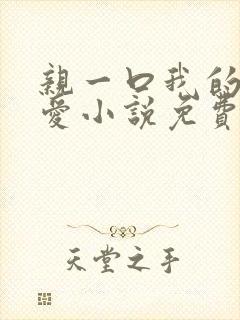 親一口我的
愛小說免費
天堂之手